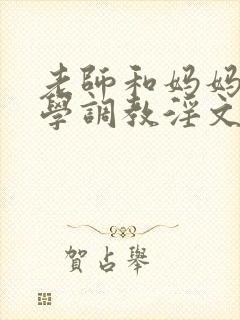 老師和妈妈
學調教淫文
賀占舉